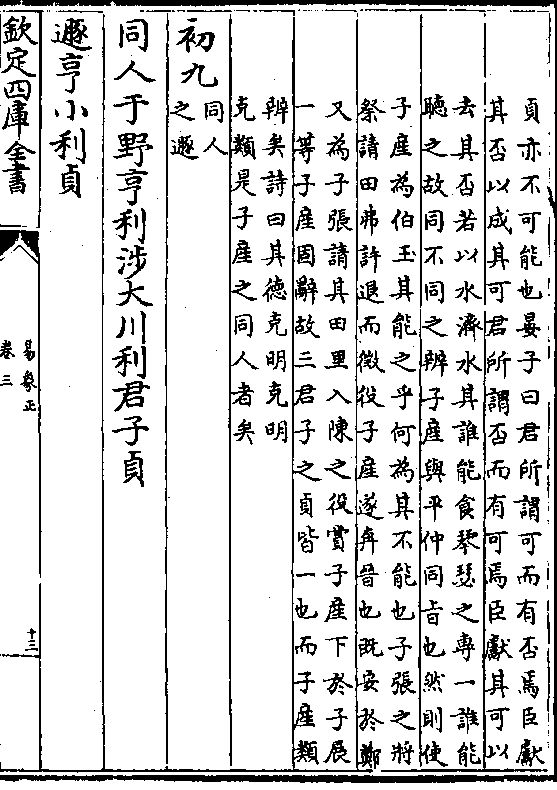 貞亦不可能也晏子曰君所謂可而有否焉臣獻
其否以成其可君所謂否而有可焉臣獻其可以
去其否若以水濟水其誰能食琴瑟之專一誰能
聽之故同不同之辨子產與平仲同旨也然則使
子產為伯玉其能之乎何為其不能也子張之將
祭請田弗許退而徵役子產遂奔晉也既安於鄭
又為子張請其田里入陳之役賞子產下於子展
一等子產固辭故三君子之貞皆一也而子產類
辨矣詩曰其德克明克明
克類是子產之同人者矣
初九同人
之遯
同人于野亨利涉大川利君子貞
遯亨小利貞
欽定四庫全書
易象正
卷三
十三